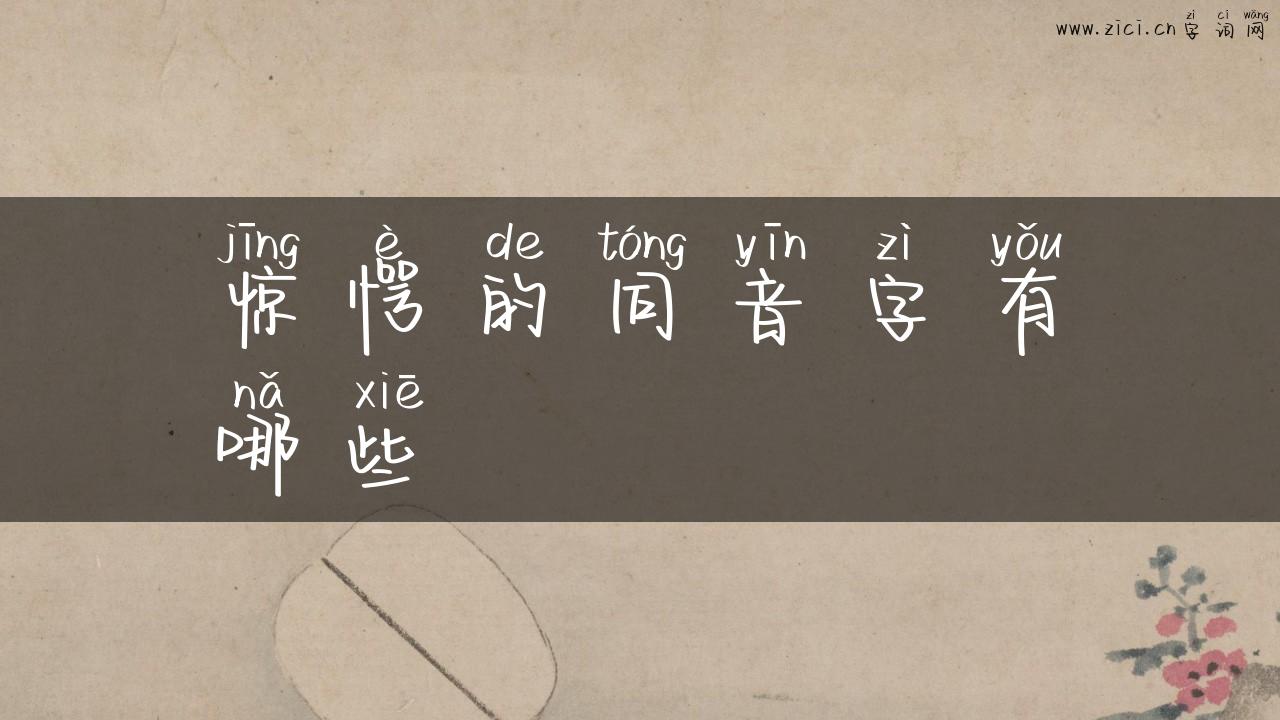 zì cí wǎng
www.zici.cn 字词网
jīng è de tóng yīn zì yǒu
惊愕的同音字有
nǎ xiē
哪些